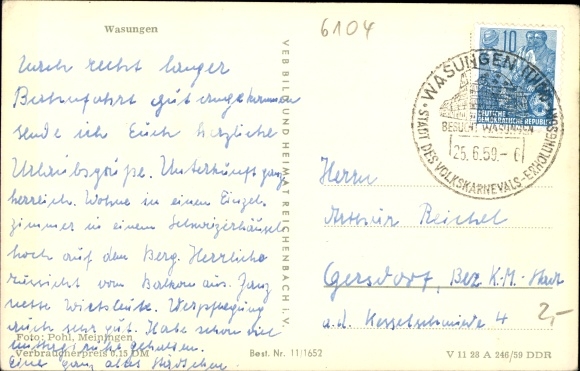 Wasungen
6104
Nach recht langer
Bahnfahrt gut angekommen
sende ich Euch herzliche
Urlaubsgrüße. Unterkunft ganz
herrlich. Wohne in einem Einzel-
zimmer in einem Schweizerhäusel
hoch auf dem Berg. Herrliche
vom Balkon aus. Ganz
nette Wirtsleute. Verpflegung
auch sehr gut. Habe schon die
gehalten.
Eine ganz altes Städtchen
Foto: Pohl, Meiningen
Verbraucherpreis 0,15 DM
Best. Nr. 11/1652
VEB BILD UND HEIMAT REICHENBACH i. V.
10
DEUTSCHE
DEMOKRATISCHE REPUBLIK
WASUNGEN (THÜR)
BESUCHT WASUNGEN
25.6.59.-
* STADT DES VOLKSKARNEVALS-ERHOLUNGSORT
Herrn
Arthur Reichel
Gersdorf, Bez. K.-M.-Stadt
a.d. Kesselschmiede 4
2,-
V 11 28 A 246/59 DDR